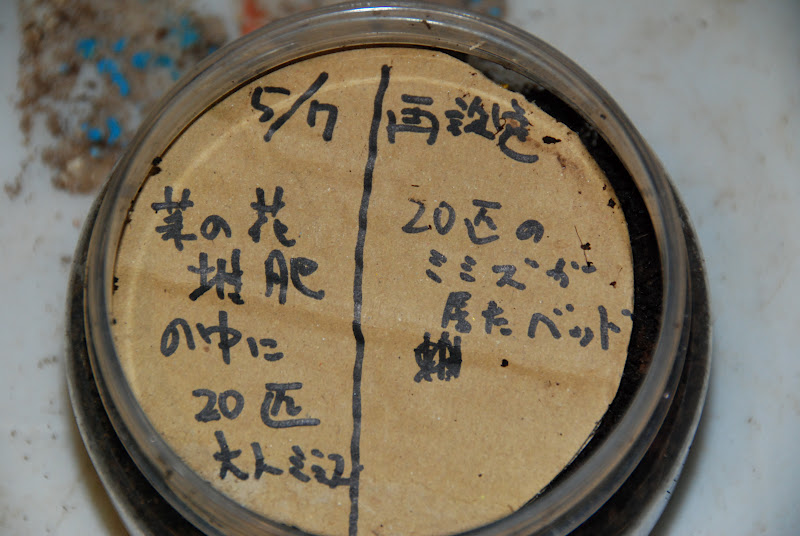 5/7
菜の花
堆肥
の中に
20匹
大人ミミズ
再設定
20匹の
ミミズが
居たベッド